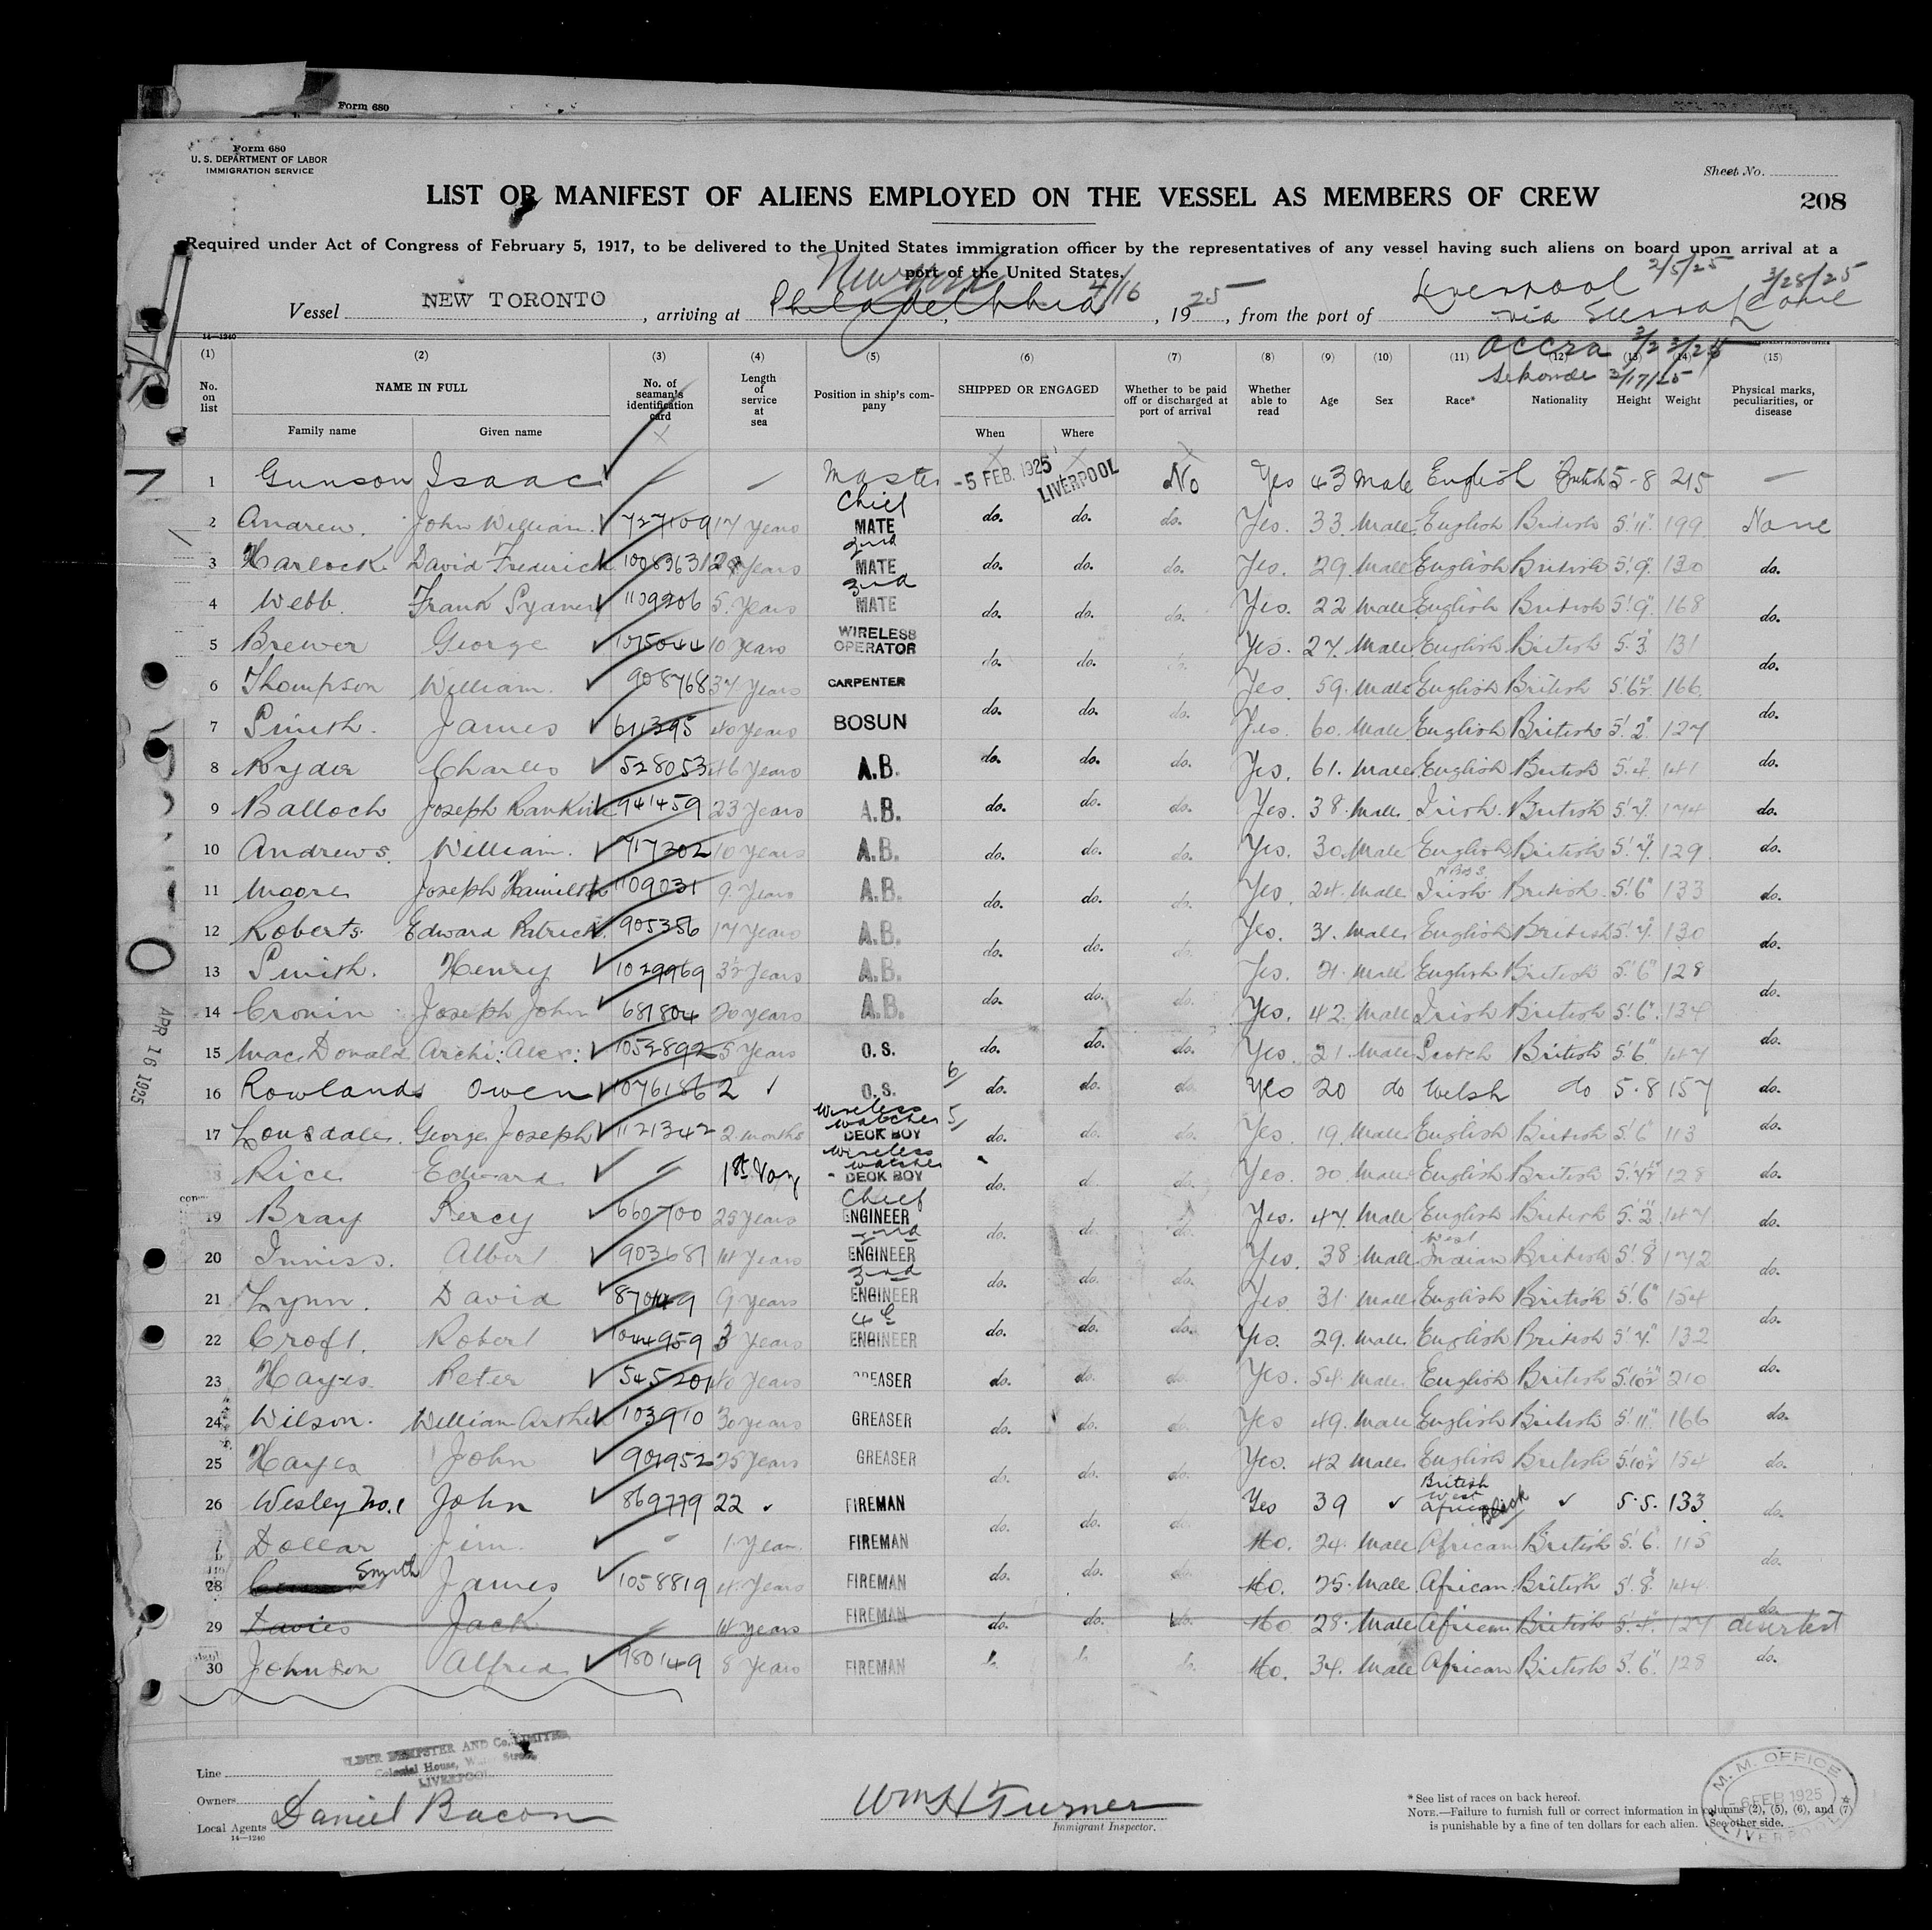 Form 680
Form 680
U. S. DEPARTMENT OF LABOR
IMMIGRATION SERVICE
Sheet No.
208
LIST OR MANIFEST OF ALIENS EMPLOYED ON THE VESSEL AS MEMBERS OF CREW
Required under Act of Congress of February 5, 1917, to be delivered to the United States immigration officer by the representatives of any vessel having such aliens on board upon arrival at a
port of the United States.
New York 4/16 Liverpool 2/5/25 3/28/25
Vessel NEW TORONTO, arriving at Philadelphia, 1925, from the port of via Sierra Leone
Accra
Sekondi 3/17/25
14—1240
(1) (2) (3) (4) (5) (6) (7) (8) (9) (10) (11) (12) (13) (14) (15)
No. on list NAME IN FULL No. of seaman's identification card Length of service at sea Position in ship's company SHIPPED OR ENGAGED Whether to be paid off or discharged at port of arrival Whether able to read Age Sex Race* Nationality Height Weight Physical marks, peculiarities, or disease
Family name Given name When Where
1 Gunson Isaac Master -5 FEB. 1925 LIVERPOOL No Yes 43 Male English British 5-8 215 —
2 Andrew John William 727109 17 years Chief MATE do. do. do. Yes. 33 Male English British 5'.11" 199 None
3 Harlock David Frederick 1008363 Years 2nd MATE do. do. do. Yes. 29 Male English British 5'.9" 130 do.
4 Webb Frank 1109206 5 Years 3rd MATE do. do. do. Yes. 22 Male English British 5'.9" 168 do.
5 Brewer George 1075044 10 Years WIRELESS OPERATOR do. do. do. Yes. 27 Male English British 5'.3" 131 do.
6 Thompson William 908768 37 Years CARPENTER do. do. do. Yes. 59 Male English British 5'.6½" 166 do.
7 Smith James 611395 40 Years BOSUN do. do. do. Yes. 60 Male English British 5'.2" 127 do.
8 Ryder Charles 528053 46 Years A.B. do. do. do. Yes. 61 Male English British 5'.4" 141 do.
9 Balloch Joseph Rankin 941459 23 Years A.B. do. do. do. Yes. 38 Male Irish British 5'.7" 174 do.
10 Andrews William 717302 10 Years A.B. do. do. do. Yes. 30 Male English British 5'.7" 129 do.
11 Moore Joseph Hamilton 1109031 9 Years A.B. do. do. do. Yes. 24 Male Irish British 5'.6" 133 do.
12 Roberts Edward Patrick 905356 17 Years A.B. do. do. do. Yes. 31 Male English British 5'.7" 130 do.
13 Smith Henry 1029969 3½ Years A.B. do. do. do. Yes. 21 Male English British 5'.6" 128 do.
14 Cronin Joseph John 681804 20 Years A.B. do. do. do. Yes. 42 Male Irish British 5'.6" 134 do.
15 MacDonald Archi: Alex: 1052892 5 Years O.S. do. do. do. Yes. 21 Male Scotch British 5'.6" 147 do.
16 Rowlands Owen 1076186 2 O.S. 6/ do. do. do. Yes 20 do Welsh do 5-8 157 do.
17 Lonsdale George Joseph 1121342 2 months Wireless watcher DECK BOY 5/ do. do. do. Yes. 19 Male English British 5'.6" 113 do.
18 Rice Edward 1st Voy Wireless watcher DECK BOY do. d. do. Yes. 20 Male English British 5'.4½" 128 do.
19 Bray Percy 660700 25 Years Chief ENGINEER do. do. do. Yes. 47 Male English British 5'.2" 147 do.
20 Inniss Albert 903681 14 Years 2nd ENGINEER do. do. do. Yes. 38 Male West Indian British 5'.8" 172 do.
21 Lynn David 9 Years 3rd ENGINEER do. do. do. Yes. 31 Male English British 5'.6" 154 do.
22 Croft Robert 1044959 3 Years 4th ENGINEER do. do. do. Yes. 29 Male English British 5'.7" 132 do.
23 Hayes Peter 545201 40 Years GREASER do. do. do. Yes. 54 Male English British 5'.10½" 210 do.
24 Wilson William Arthur 103910 30 years GREASER do. do. do. Yes 49 Male English British 5'.11" 166 do.
25 Hayes John 901952 25 Years GREASER do. do. do. Yes. 42 Male English British 5'.10½" 154 do.
26 Wesley No.1 John 869779 22 FIREMAN do. do. do. Yes 39 British West African Black 5-5 133 do.
Dollar Jim 1 Year FIREMAN do. do. do. No. 24 Male African British 5'.6" 115 do.
28 Smyth James 1058819 4 Years FIREMAN do. do. do. No. 25 Male African British 5'.8" 144 do.
29 Davies Jack 14 years FIREMAN do. do. do. No 28 Male African British 5'.4" 127 deserted
30 Johnson Alfred 980149 8 Years FIREMAN No. 34 Male African British 5'.6" 128 do.
APR 16 1925
Line
ELDER DEMPSTER AND Co. LIMITED,
Colonial House, Water Street,
LIVERPOOL
Owners
Local Agents Daniel Bacon
14—1240
Wm H Turner
Immigrant Inspector.
* See list of races on back hereof.
NOTE.—Failure to furnish full or correct information in columns (2), (5), (6), and (7)
is punishable by a fine of ten dollars for each alien. See other side.
M. M. OFFICE
-6 FEB 1925
LIVERPOOL